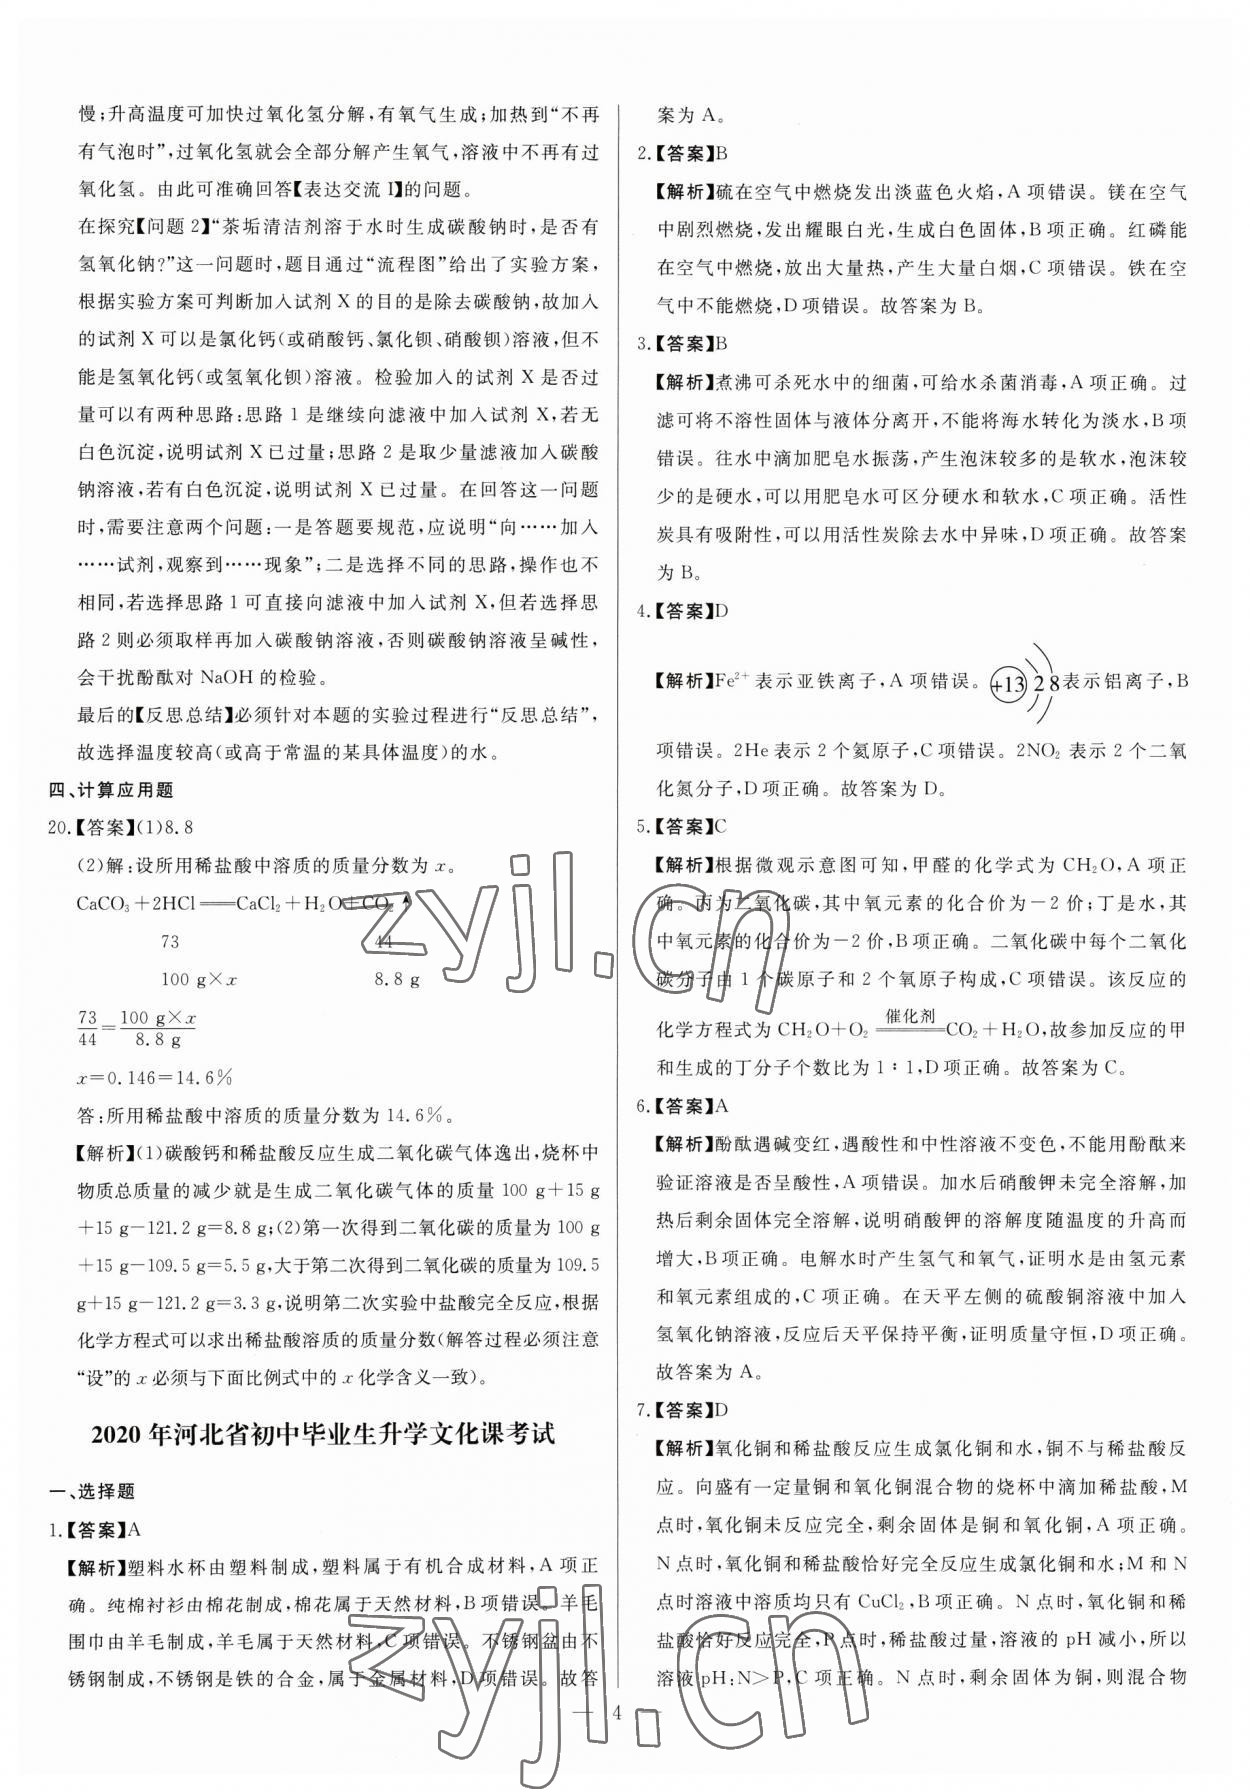 慢;升高温度可加快过氧化氢分解,有氧气生成;加热到“不再
有气泡时”,过氧化氢就会全部分解产生氧气,溶液中不再有过
氧化氢。由此可准确回答【表达交流 I】的问题。
在探究【问题 2】“茶垢清洁剂溶于水时生成碳酸钠时,是否有
氢氧化钠?”这一问题时,题目通过“流程图”给出了实验方案,
根据实验方案可判断加入试剂 X 的目的是除去碳酸钠,故加入
的试剂 X 可以是氯化钙(或硝酸钙、氯化钡、硝酸钡)溶液,但不
能是氢氧化钙(或氢氧化钡)溶液。检验加入的试剂 X 是否过
量可以有两种思路:思路 1 是继续向滤液中加入试剂 X,若无
白色沉淀,说明试剂 X 已过量;思路 2 是取少量滤液加入碳酸
钠溶液,若有白色沉淀,说明试剂 X 已过量。在回答这一问题
时,需要注意两个问题:一是答题要规范,应说明“向……加入
……试剂,观察到……现象”;二是选择不同的思路,操作也不
相同,若选择思路 1 可直接向滤液中加入试剂 X,但若选择思
路 2 则必须取样再加入碳酸钠溶液,否则碳酸钠溶液呈碱性,
会干扰酚酞对 NaOH 的检验。
最后的【反思总结】必须针对本题的实验过程进行“反思总结”,
故选择温度较高(或高于常温的某具体温度)的水。
四、计算应用题
20.【答案】(1)8.8
(2)解:设所用稀盐酸中溶质的质量分数为 x。
CaCO₃+2HCl══CaCl₂+H₂O+CO₂↑
73 44
100 g×x 8.8 g
73/44=100 g×x/8.8 g
x=0.146=14.6%
答:所用稀盐酸中溶质的质量分数为 14.6%。
【解析】(1)碳酸钙和稀盐酸反应生成二氧化碳气体逸出,烧杯中
物质总质量的减少就是生成二氧化碳气体的质量 100 g+15 g
+15 g-121.2 g=8.8 g;(2)第一次得到二氧化碳的质量为 100 g
+15 g-109.5 g=5.5 g,大于第二次得到二氧化碳的质量为 109.5
g+15 g-121.2 g=3.3 g,说明第二次实验中盐酸完全反应,根据
化学方程式可以求出稀盐酸溶质的质量分数(解答过程必须注意
“设”的 x 必须与下面比例式中的 x 化学含义一致)。
2020 年河北省初中毕业生升学文化课考试
一、选择题
1.【答案】A
【解析】塑料水杯由塑料制成,塑料属于有机合成材料,A 项正
确。纯棉衬衫由棉花制成,棉花属于天然材料,B项错误。羊毛
围巾由羊毛制成,羊毛属于天然材料,C项错误。不锈钢盆由不
锈钢制成,不锈钢是铁的合金,属于金属材料,D项错误。故答
案为 A。
2.【答案】B
【解析】硫在空气中燃烧发出淡蓝色火焰,A 项错误。镁在空气
中剧烈燃烧,发出耀眼白光,生成白色固体,B项正确。红磷能
在空气中燃烧,放出大量热,产生大量白烟,C 项错误。铁在空
气中不能燃烧,D项错误。故答案为 B。
3.【答案】B
【解析】煮沸可杀死水中的细菌,可给水杀菌消毒,A 项正确。过
滤可将不溶性固体与液体分离开,不能将海水转化为淡水,B 项
错误。往水中滴加肥皂水振荡,产生泡沫较多的是软水,泡沫较
少的是硬水,可以用肥皂水可区分硬水和软水,C项正确。活性
炭具有吸附性,可以用活性炭除去水中异味,D 项正确。故答案
为 B。
4.【答案】D
【解析】Fe²⁺ 表示亚铁离子,A 项错误。+13 2 8 表示铝离子,B
项错误。2He 表示 2 个氦原子,C 项错误。2NO₂ 表示 2 个二氧
化氮分子,D 项正确。故答案为 D。
5.【答案】C
【解析】根据微观示意图可知,甲醛的化学式为 CH₂O,A 项正
确。丙为二氧化碳,其中氧元素的化合价为-2 价;丁是水,其
中氧元素的化合价为-2 价,B项正确。二氧化碳中每个二氧化
碳分子由 1 个碳原子和 2 个氧原子构成,C 项错误。该反应的
化学方程式为 CH₂O+O₂ ══催化剂══ CO₂+H₂O,故参加反应的甲
和生成的丁分子个数比为 1∶1,D 项正确。故答案为 C。
6.【答案】A
【解析】酚酞遇碱变红,遇酸性和中性溶液不变色,不能用酚酞来
验证溶液是否呈酸性,A 项错误。加水后硝酸钾未完全溶解,加
热后剩余固体完全溶解,说明硝酸钾的溶解度随温度的升高而
增大,B 项正确。电解水时产生氢气和氧气,证明水是由氢元素
和氧元素组成的,C 项正确。在天平左侧的硫酸铜溶液中加入
氢氧化钠溶液,反应后天平保持平衡,证明质量守恒,D 项正确。
故答案为 A。
7.【答案】D
【解析】氧化铜和稀盐酸反应生成氯化铜和水,铜不与稀盐酸反
应。向盛有一定量铜和氧化铜混合物的烧杯中滴加稀盐酸,M
点时,氧化铜未反应完全,剩余固体是铜和氧化铜,A 项正确。
N 点时,氧化铜和稀盐酸恰好完全反应生成氯化铜和水;M 和 N
点时溶液中溶质均只有 CuCl₂,B 项正确。N 点时,氧化铜和稀
盐酸恰好反应完全,P 点时,稀盐酸过量,溶液的 pH 减小,所以
溶液 pH:N>P,C 项正确。N 点时,剩余固体为铜,则混合物
— 4 —
zyjl.cn
zyjl.cn